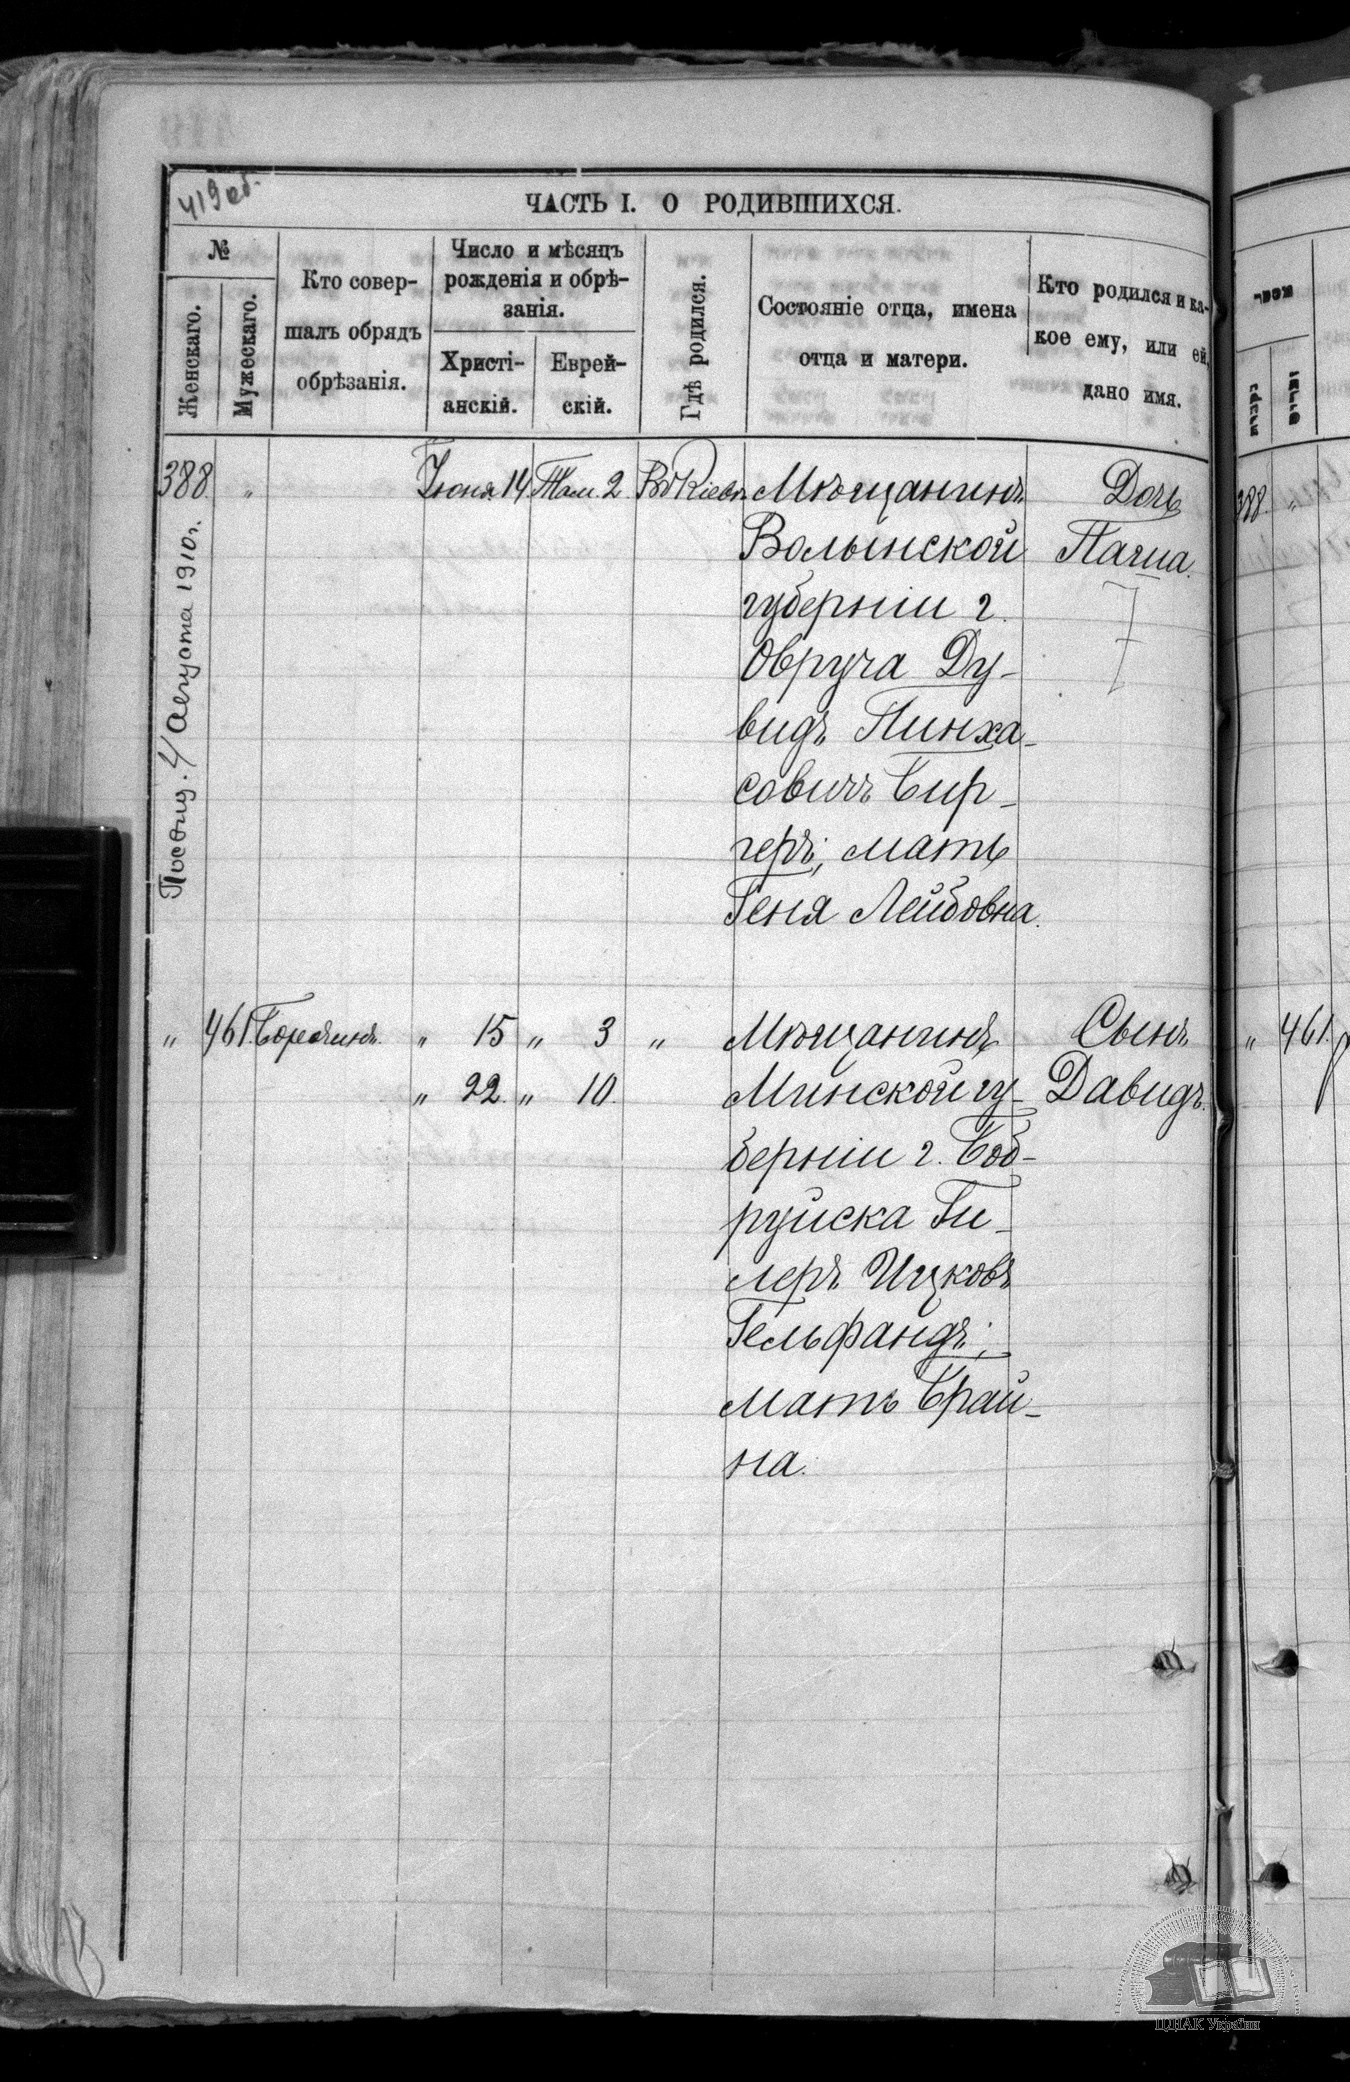 419 об.
ЧАСТЬ I. О РОДИВШИХСЯ.
№
Женскаго.
Мужескаго.
Кто совер-
шалъ обрядъ
обрѣзанія.
Число и мѣсяцъ
рожденія и обрѣ-
занія.
Христі-
анскій.
Еврей-
скій.
Гдѣ родился.
Состояніе отца, имена
отца и матери.
Кто родился и ка-
кое ему, или ей,
дано имя.
388 " Іюня 14 Там. 2 Въ Кіевѣ Мѣщанинъ Дочь
Волынской
губерніи г.
Овруча Ду-
видъ Пинха-
совичъ Бир-
геръ; мать
Геня Лейбовна.
" 461. " 15 " 3 " Мѣщанинъ Сынъ
" 22. " 10. Минской гу- Давидъ.
берніи г. Боб-
руйска Ги-
леръ Ицковъ
Гельфандъ;
мать Брай-
на.
4 Августа 1910 г.
388. "
" 461.
ЦДІАК України